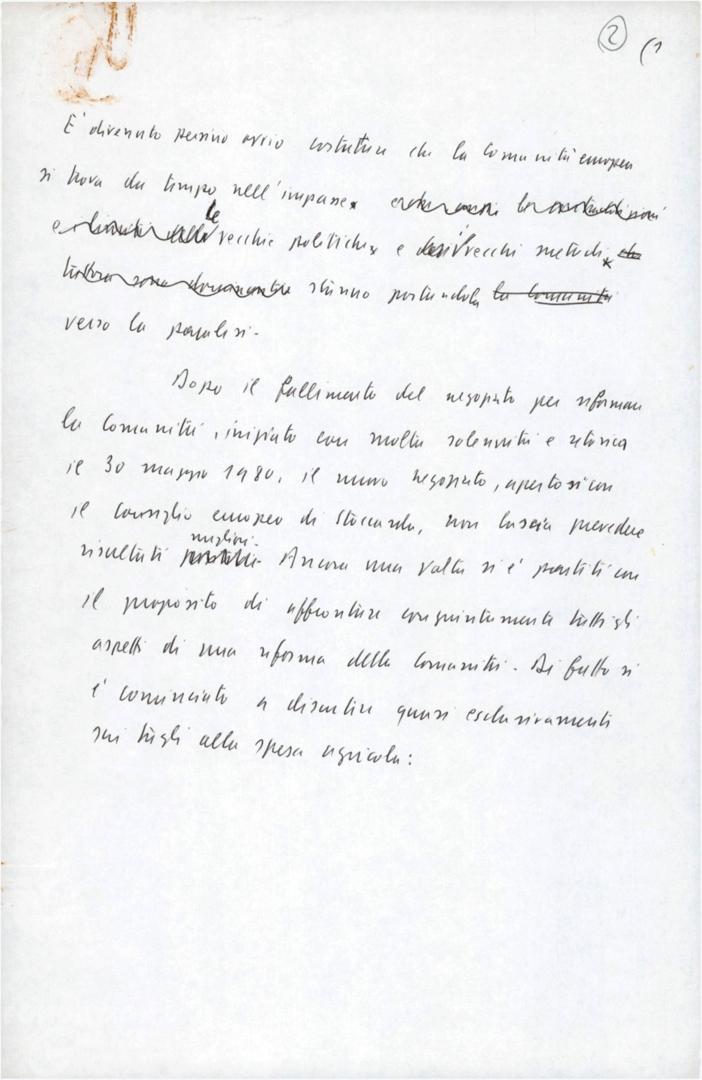 2 (1
E' divenuto persino ovvio constatare che la Comunità europea
si trova da tempo nell'impasse. le contraddizioni
e i limiti delle le vecchie politiche e dei i vecchi metodi che
tuttora sono stanno portandola la comunità
verso la paralisi.
Dopo il fallimento del negoziato per riformare
la Comunità, iniziato con molta solennità e retorica
il 30 maggio 1980, il nuovo negoziato, apertosi con
il Consiglio europeo di Stoccarda, non lascia prevedere
migliori.
risultati Ancora una volta si è partiti con
il proposito di affrontare congiuntamente tutti gli
aspetti di una riforma della Comunità. Di fatto si
è cominciato a discutere quasi esclusivamente
sui tagli alla spesa agricola: